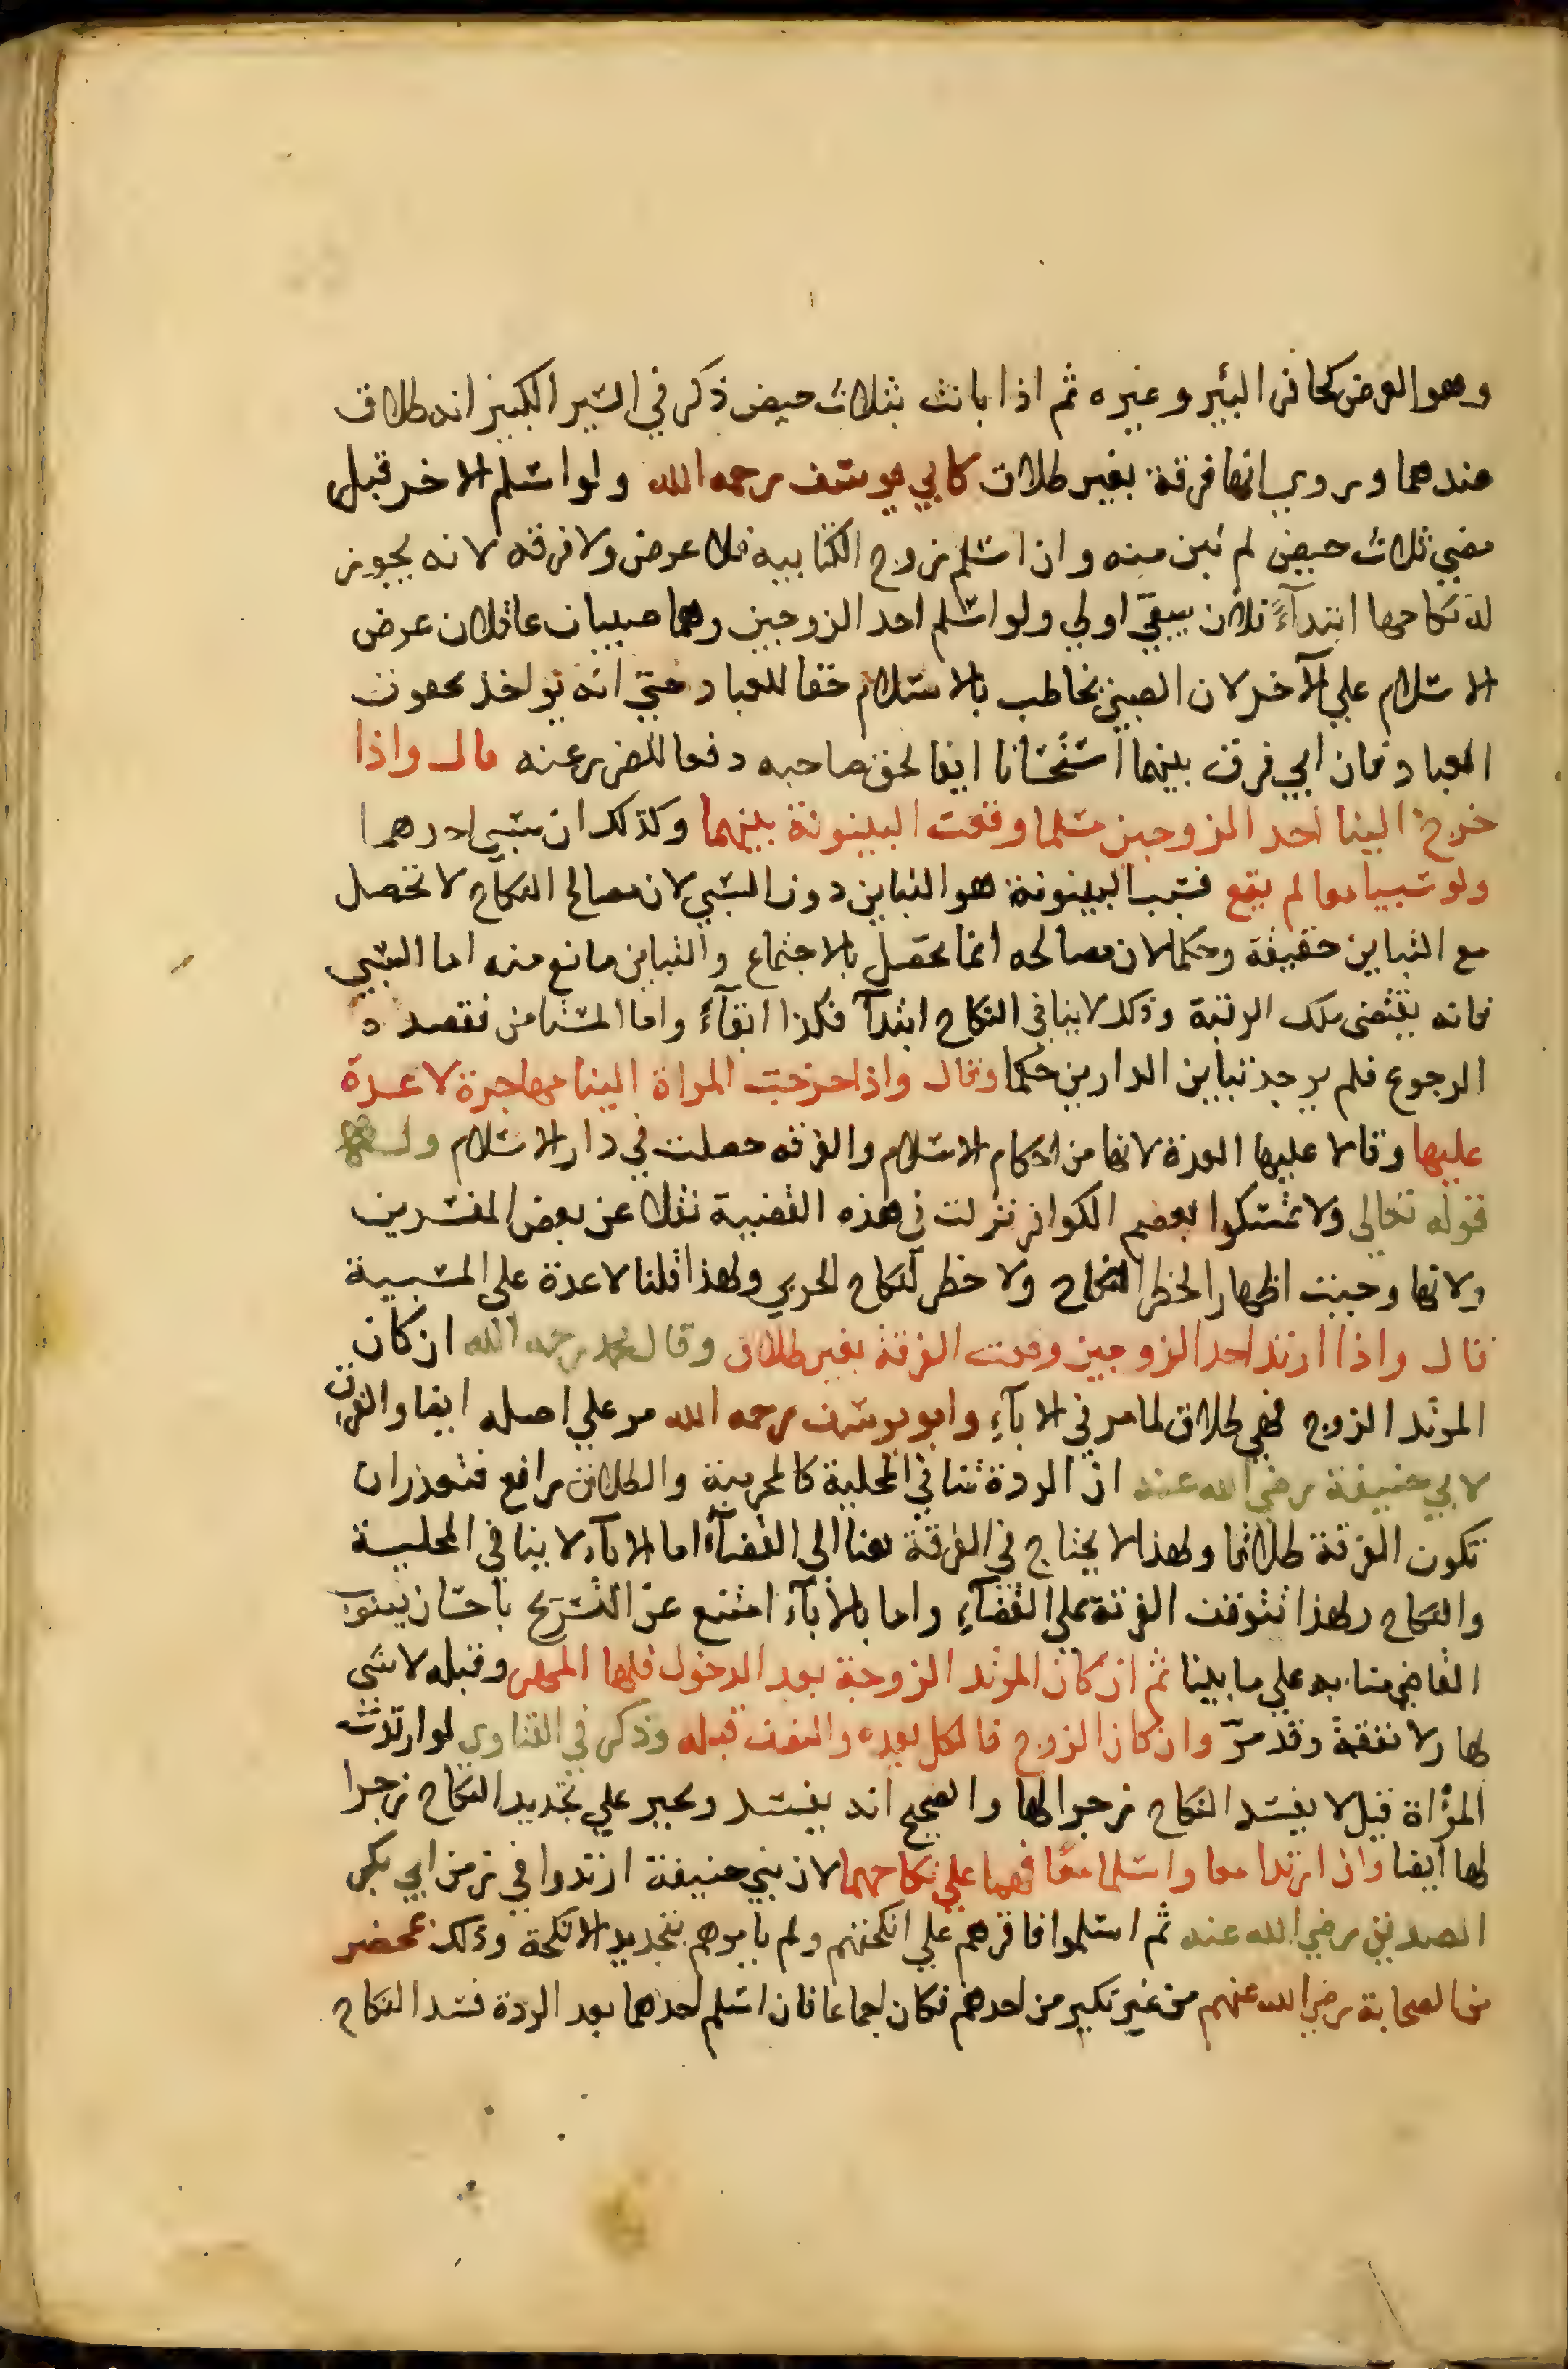 وهو العرض كحافر البئير وغيره ثم اذا بانت بثلاث حيض ذكر في السير الكبير انه طلاق
عندهما وروي انها فرقة بغير طلاق كابي يوسف رحمه الله ولو اسلم الاخر قبل
مضي ثلاث حيض لم تبن منه وان اسلم زوج الكتابيه فلا عرض ولا فرقه لانه يجوز
له نكاحها ابتدآءً فلان يبقي اولي ولو اسلم احد الزوجين وهما صبيان عاقلان عرض
الاسلام علي الآخر لان الصبي يخاطب بالاسلام حقا للعباد حتي انه يواخذ بحقوق
العباد فان ابي فرق بينهما استحسانا ايفا لحق صاحبه دفعا للضرر عنه قال واذا
خرج الينا احد الزوجين مسلما وقعت البينونة بينهما وكذلك ان سبي احدهما
ولو سبيا معا لم يقع فسبب البينونة هو التباين دون السبي لان مصالح النكاح لا تحصل
مع التباين حقيقة وحكما لان مصالحه انما تحصل بالاجتماع والتباين مانع منه اما السبي
فانه يقتضي ملك الرقبة وذلك لا ينافي النكاح ابتدآ فكذا ابقآءً واما المستامن فقصده
الرجوع فلم يوجد تباين الدارين حكما وقال واذا خرجت المراة الينا مهاجرة لا عدة
عليها وقالا عليها العدة لانها من احكام الاسلام والفرقه حصلت في دار الاسلام وله
قوله تعالي ولا تمسكوا بعصم الكوافر نزلت في هذه القضية نقلا عن بعض المفسرين
ولانها وجبت اظهار الخطر النكاح ولا خطر لنكاح الحربي ولهذا قلنا لا عدة علي المسبية
قال واذا ارتد احد الزوجين وقعت الفرقة بغير طلاق وقال محمد رحمه الله ان كان
المرتد الزوج فهي طلاق لما مر في الابآءِ وابو يوسف رحمه الله مر علي اصله ايضا والفرق
لابي حنيفة رضي الله عنه ان الردة تنافي المحلية كالمحرمية والطلاق رافع فتعذر ان
تكون الفرقة طلاقا ولهذا لا يحتاج في الفرقة هنا الي القضآءِ اما الابآء لا ينافي المحلية
والنكاح ولهذا تتوقف الفرقة علي القضآءِ واما بالابآء امتنع عن التسريح باحسان فينوب
القاضي منابه علي ما بينا ثم ان كان المرتد الزوجة بعد الدخول فلها المهر وقبله لا شي
لها ولا نفقة وقد مرّ وان كان الزوج فالكل بعده والنصف قبله وذكر في الفتاوي لو ارتدت
المرأة قيل لا يفسد النكاح زجرا لها والصحيح انه يفسد وتجبر علي تجديد النكاح زجرا
لها ايضا وان ارتدا معا واسلما معًا فهما علي نكاحهما لان بني حنيفة ارتدوا في زمن ابي بكر
الصديق رضي الله عنه ثم اسلموا فاقرهم علي انكحتهم ولم يامرهم بتجديد الانكحة وذلك بمحضر
من الصحابة رضي الله عنهم من غير نكير من احدهم فكان اجماعا فان اسلم احدهما بعد الردة فسد النكاح